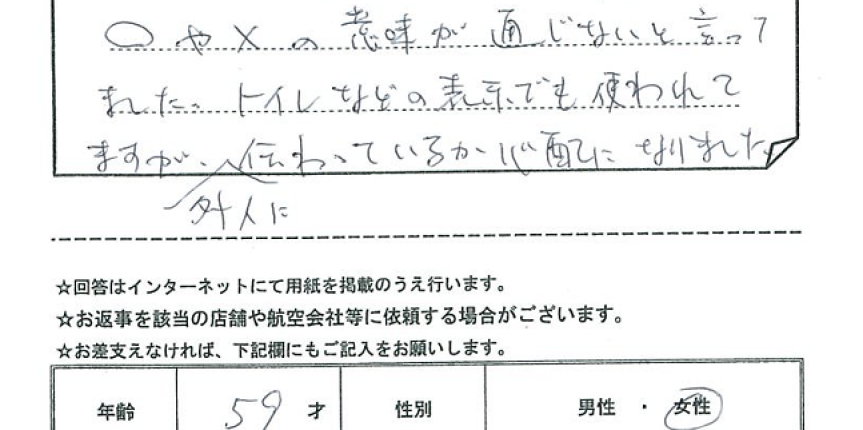 ○や×の意味が通じないと言って
ました。トイレなどの表示でも使われて
ますが、伝わっているか心配になりました。
外人に
☆回答はインターネットにて用紙を掲載のうえ行います。
☆お返事を該当の店舗や航空会社等に依頼する場合がございます。
☆お差支えなければ、下記欄にもご記入をお願いします。
年齢 59 才 性別 男性 ・ 女性